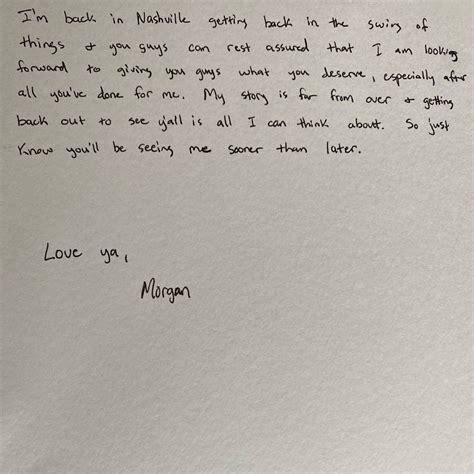 I'm back in Nashville getting back in the swing of
things & you guys can rest assured that I am looking
forward to giving you guys what you deserve, especially after
all you've done for me. My story is far from over & getting
back out to see y'all is all I can think about. So just
Know you'll be seeing me sooner than later.
Love ya,
Morgan